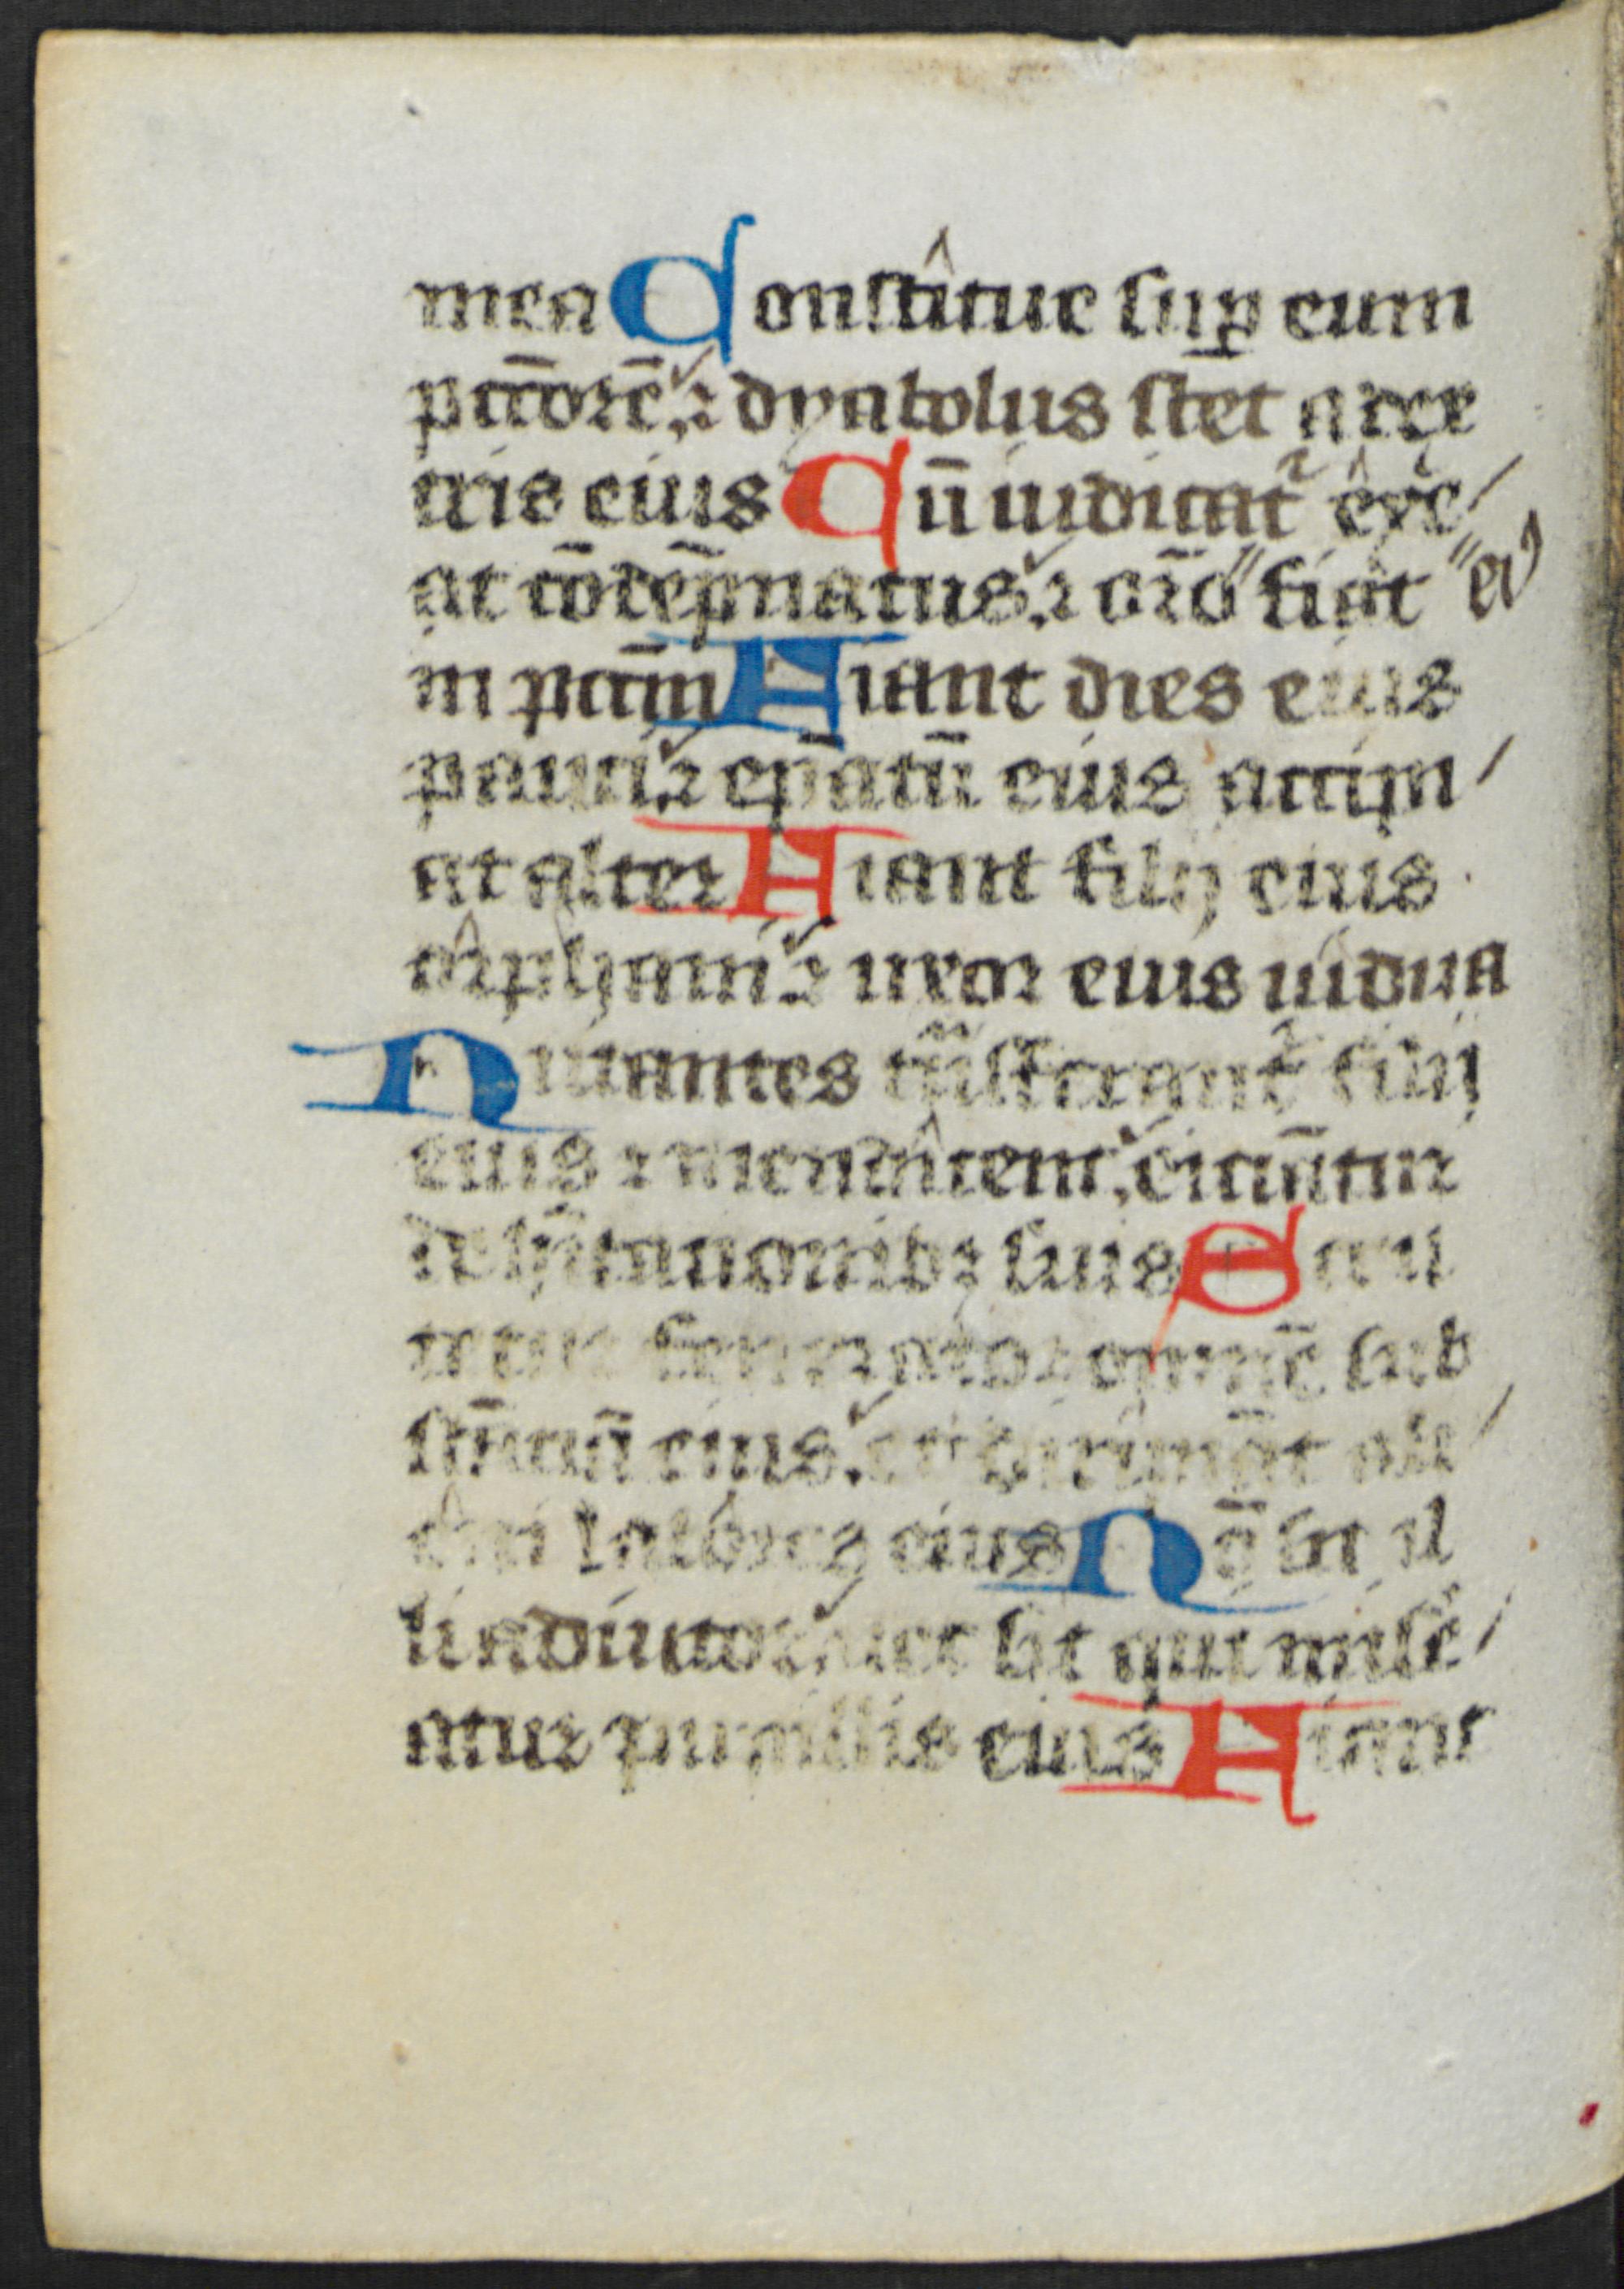 mea Constitue sup eum
pctōrē ⁊ dyabolus stet a dex
tris eius Cū iudicat᷑ exe
at cōdēpnatus ⁊ or̄o fiat ei
in pctm̄ Fiant dies eius
pauci ⁊ ep̄atū eius accipi
at alter Fiant filij eius
orphani ⁊ uxor eius uidua
Nutantes tnsferant᷑ filij
eius ⁊ mendicent, eiciant̄ur
de hītationibꝫ suis Scru
tetur fenerator omnē sub
stn̄tiā eius et diripiāt ali
eni labores eius Nō sit il
li adiutor nec sit qui mise
atur pupillis eius Fiant